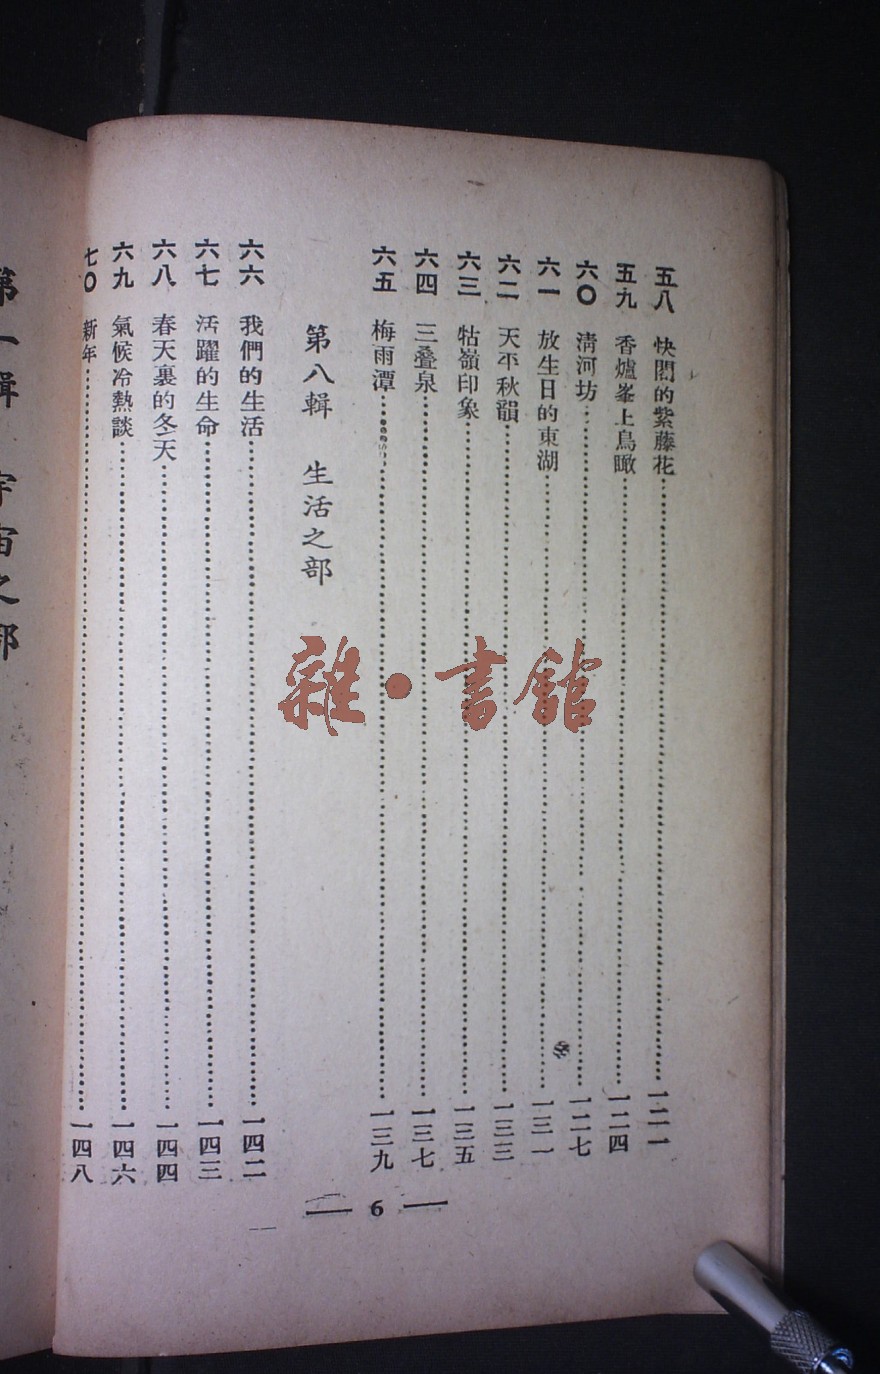 五八 快閣的紫藤花……一二一
五九 香爐峯上鳥瞰……一二四
六〇 清河坊……一二七
六一 放生日的東湖……一三一
六二 天平秋韻……一三三
六三 牯嶺印象……一三五
六四 三叠泉……一三七
六五 梅雨潭……一三九
第八輯 生活之部
六六 我們的生活……一四二
六七 活躍的生命……一四三
六八 春天裏的冬天……一四四
六九 氣候冷熱談……一四六
七〇 新年……一四八
6
第一輯 宇宙之部
雜·書館